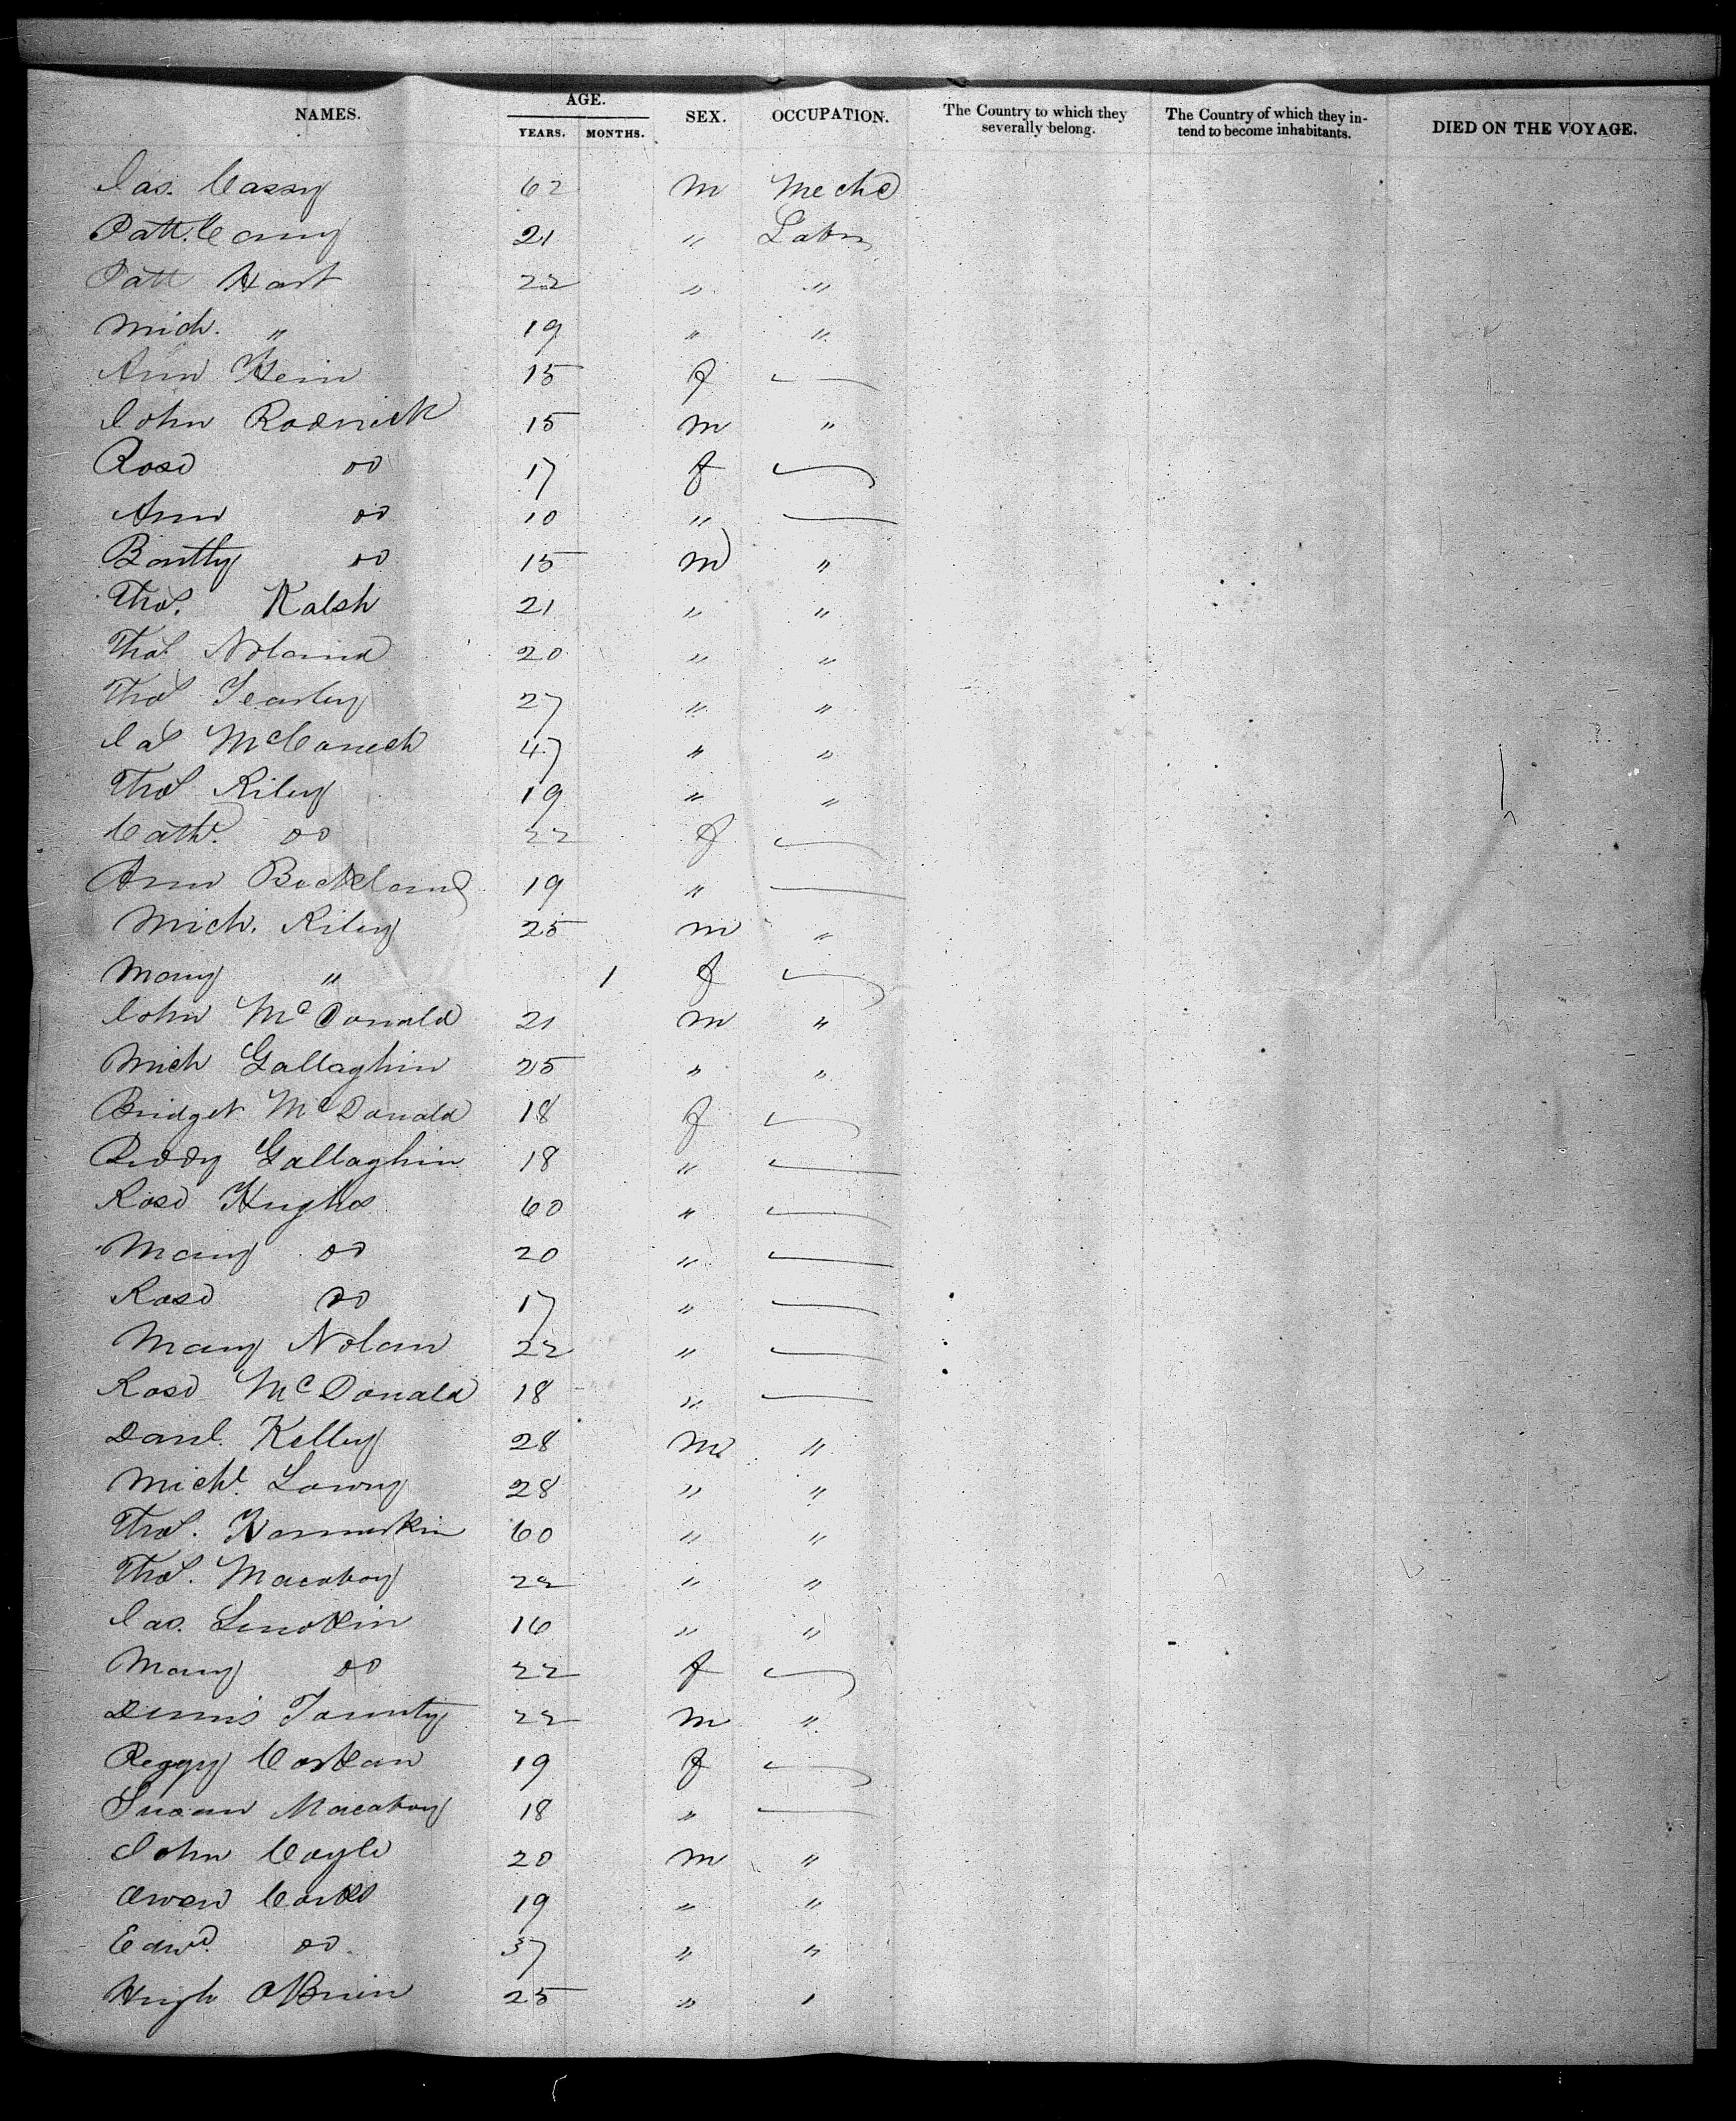 NAMES. AGE. YEARS. MONTHS. SEX. OCCUPATION. The Country to which they severally belong. The Country of which they intend to become inhabitants. DIED ON THE VOYAGE.
Jas. Cassy 62 m Mechc
Patt. Camy 21 " Labr
Patt Hart 22 " "
Mich. " 19 " "
Ann Hein 15 f —
John Rodrick 15 m "
Rose do 17 f —
Ann do 10 " —
Bartly do 15 m "
Thos. Kalsh 21 " "
Thos. Noland 20 " "
Thos Tearley 27 " "
Jas McCormick 47 " "
Thos Riley 19 " "
Cathe. do 22 f —
Ann Buckland 19 " —
Mich. Riley 25 m "
Mary " 1 f —
John McDonald 21 m "
Mich Gallaghin 25 " "
Bridget McDonald 18 f —
Peddy Gallaghin 18 " —
Rose Hughs 60 " —
Mary do 20 " —
Rose do 17 " —
Mary Nolan 22 " —
Rose McDonald 18 " —
Danl. Kelley 28 m "
Michl. Lowry 28 " "
Thos. 60 " "
Thos. Macaboy 22 " "
Jas. 16 " "
Mary do 22 f —
Dennis 22 m "
Peggy Costean 19 f —
Susan Macaboy 18 " —
John Coyle 20 m "
Owen 19 " "
Edwd. do 37 " "
Hugh OBrien 25 " "